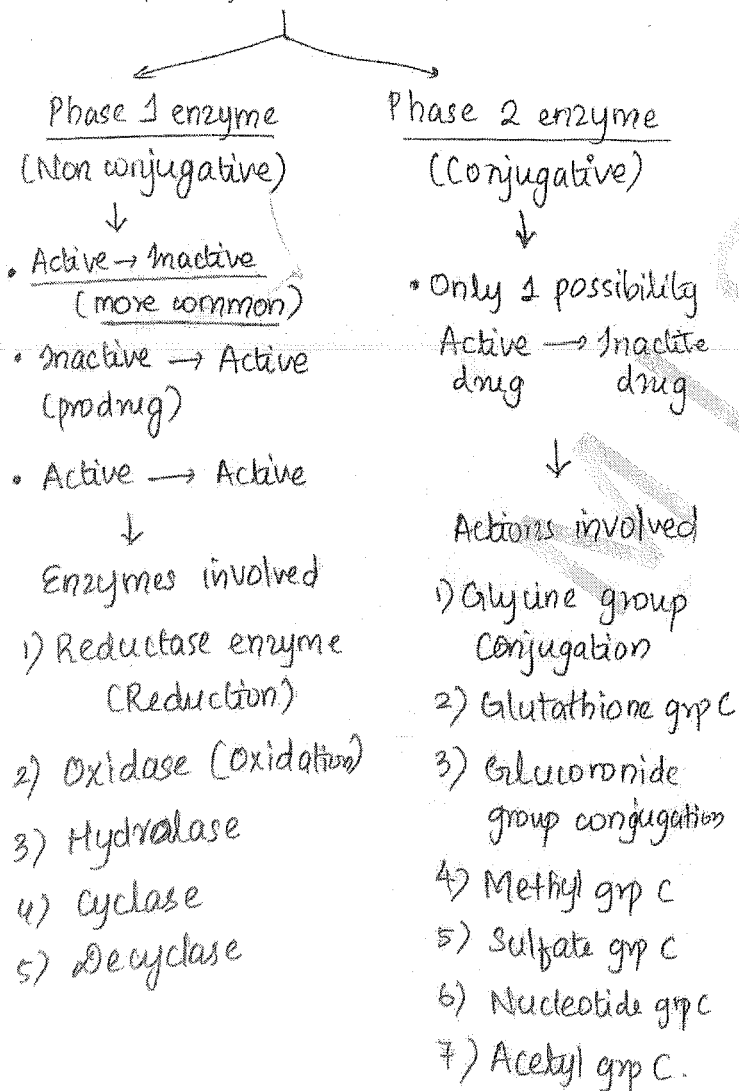 Phase 1 enzyme
(Non conjugative)
↓
• Active → Inactive
(more common)
• Inactive → Active
(prodrug)
• Active → Active
↓
Enzymes involved
1) Reductase enzyme
(Reduction)
2) Oxidase (Oxidation)
3) Hydralase
4) Cyclase
5) Decyclase
Phase 2 enzyme
(Conjugative)
↓
• Only 1 possibility
Active → Inactite
drug drug
↓
Actions involved
1) Glycine group
Conjugation
2) Glutathione grp C
3) Glucoronide
group conjugation
4) Methyl grp C
5) Sulfate grp C
6) Nucleotide grp C
7) Acetyl grp C.